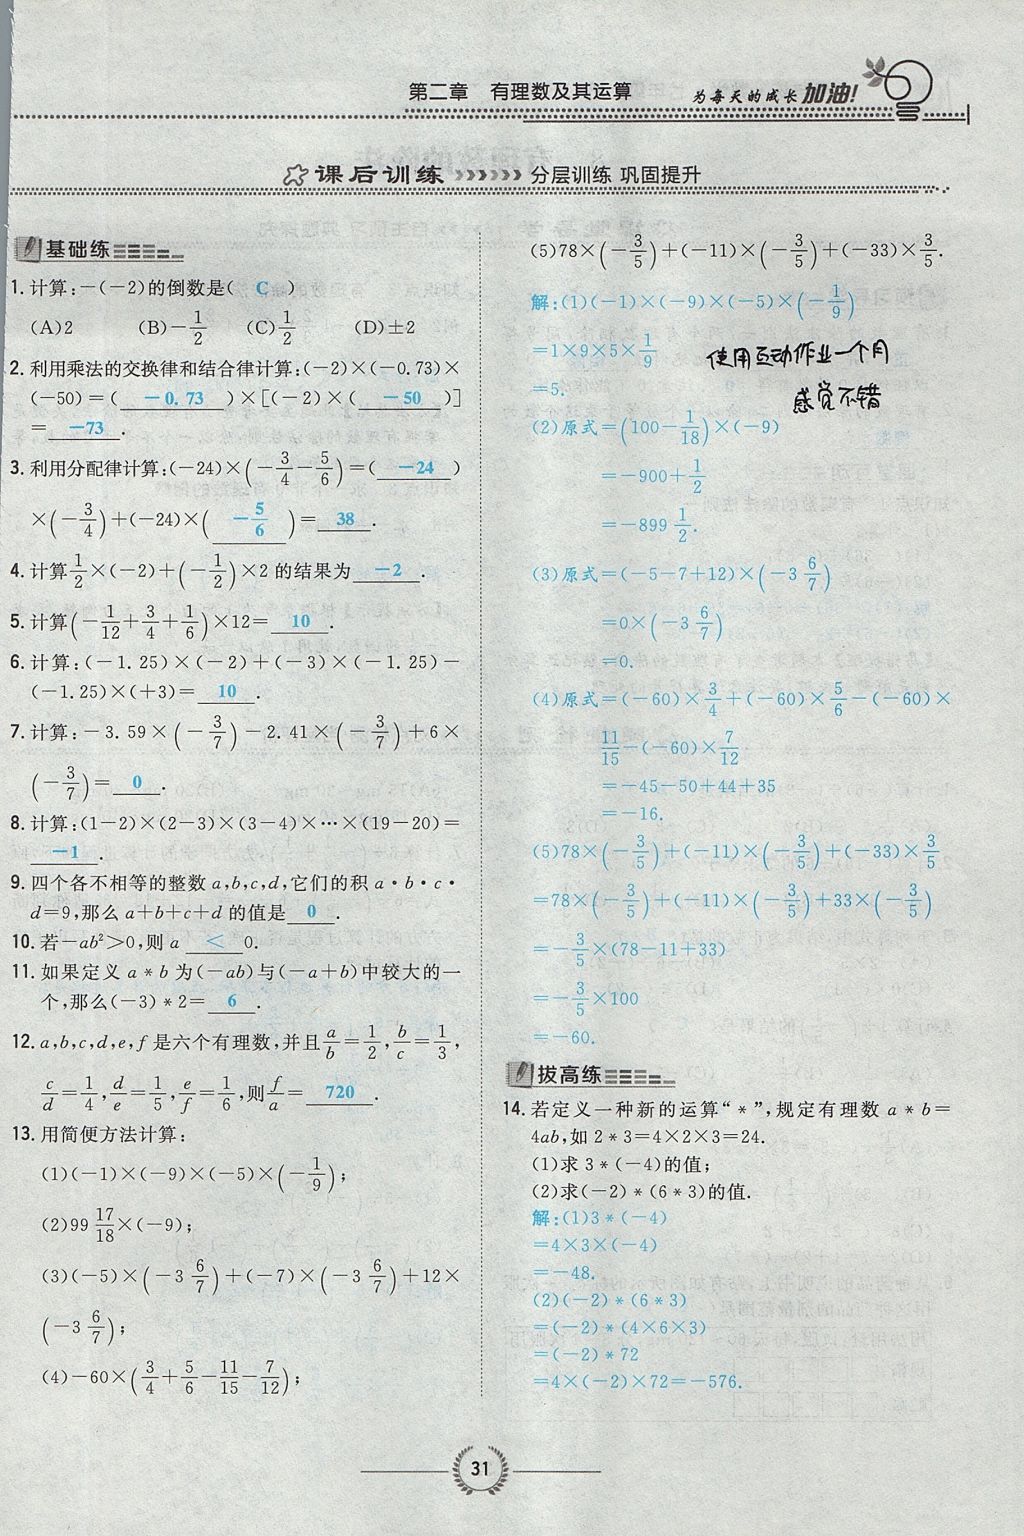 第二章 有理数及其运算
为每天的成长加油!
课后训练 >>>>>> 分层训练 巩固提升
基础练
1. 计算:-(-2)的倒数是( C )
(A)2 (B)-1/2 (C)1/2 (D)±2
2. 利用乘法的交换律和结合律计算:(-2)×(-0.73)×
(-50)=( -0.73 )×[(-2)×( -50 )]
= -73 .
3. 利用分配律计算:(-24)×(-3/4-5/6)=( -24 )
×(-3/4)+(-24)×( -5/6 )= 38 .
4. 计算1/2×(-2)+(-1/2)×2的结果为 -2 .
5. 计算(-1/12+3/4+1/6)×12= 10 .
6. 计算:(-1.25)×(-2)+(-3)×(-1.25)-
(-1.25)×(+3)= 10 .
7. 计算:-3.59×(-3/7)-2.41×(-3/7)+6×
(-3/7)= 0 .
8. 计算:(1-2)×(2-3)×(3-4)×…×(19-20)=
-1 .
9. 四个各不相等的整数a,b,c,d,它们的积a·b·c·
d=9,那么a+b+c+d的值是 0 .
10. 若-ab²>0,则a < 0.
11. 如果定义a*b为(-ab)与(-a+b)中较大的一
个,那么(-3)*2= 6 .
12. a,b,c,d,e,f是六个有理数,并且a/b=1/2,b/c=1/3,
c/d=1/4,d/e=1/5,e/f=1/6,则f/a= 720 .
13. 用简便方法计算:
(1)(-1)×(-9)×(-5)×(-1/9);
(2)99 17/18×(-9);
(3)(-5)×(-3 6/7)+(-7)×(-3 6/7)+12×
(-3 6/7);
(4)-60×(3/4+5/6-11/15-7/12);
(5)78×(-3/5)+(-11)×(-3/5)+(-33)×3/5.
解:(1)(-1)×(-9)×(-5)×(-1/9)
=1×9×5×1/9
=5.
使用互动作业一个月
感觉不错
(2)原式=(100-1/18)×(-9)
=-900+1/2
=-899 1/2.
(3)原式=(-5-7+12)×(-3 6/7)
=0×(-3 6/7)
=0.
(4)原式=(-60)×3/4+(-60)×5/6-(-60)×
11/15-(-60)×7/12
=-45-50+44+35
=-16.
(5)78×(-3/5)+(-11)×(-3/5)+(-33)×3/5
=78×(-3/5)+(-11)×(-3/5)+33×(-3/5)
=-3/5×(78-11+33)
=-3/5×100
=-60.
拔高练
14. 若定义一种新的运算“*”,规定有理数a*b=
4ab,如2*3=4×2×3=24.
(1)求3*(-4)的值;
(2)求(-2)*(6*3)的值.
解:(1)3*(-4)
=4×3×(-4)
=-48.
(2)(-2)*(6*3)
=(-2)*(4×6×3)
=(-2)*72
=4×(-2)×72=-576.
31